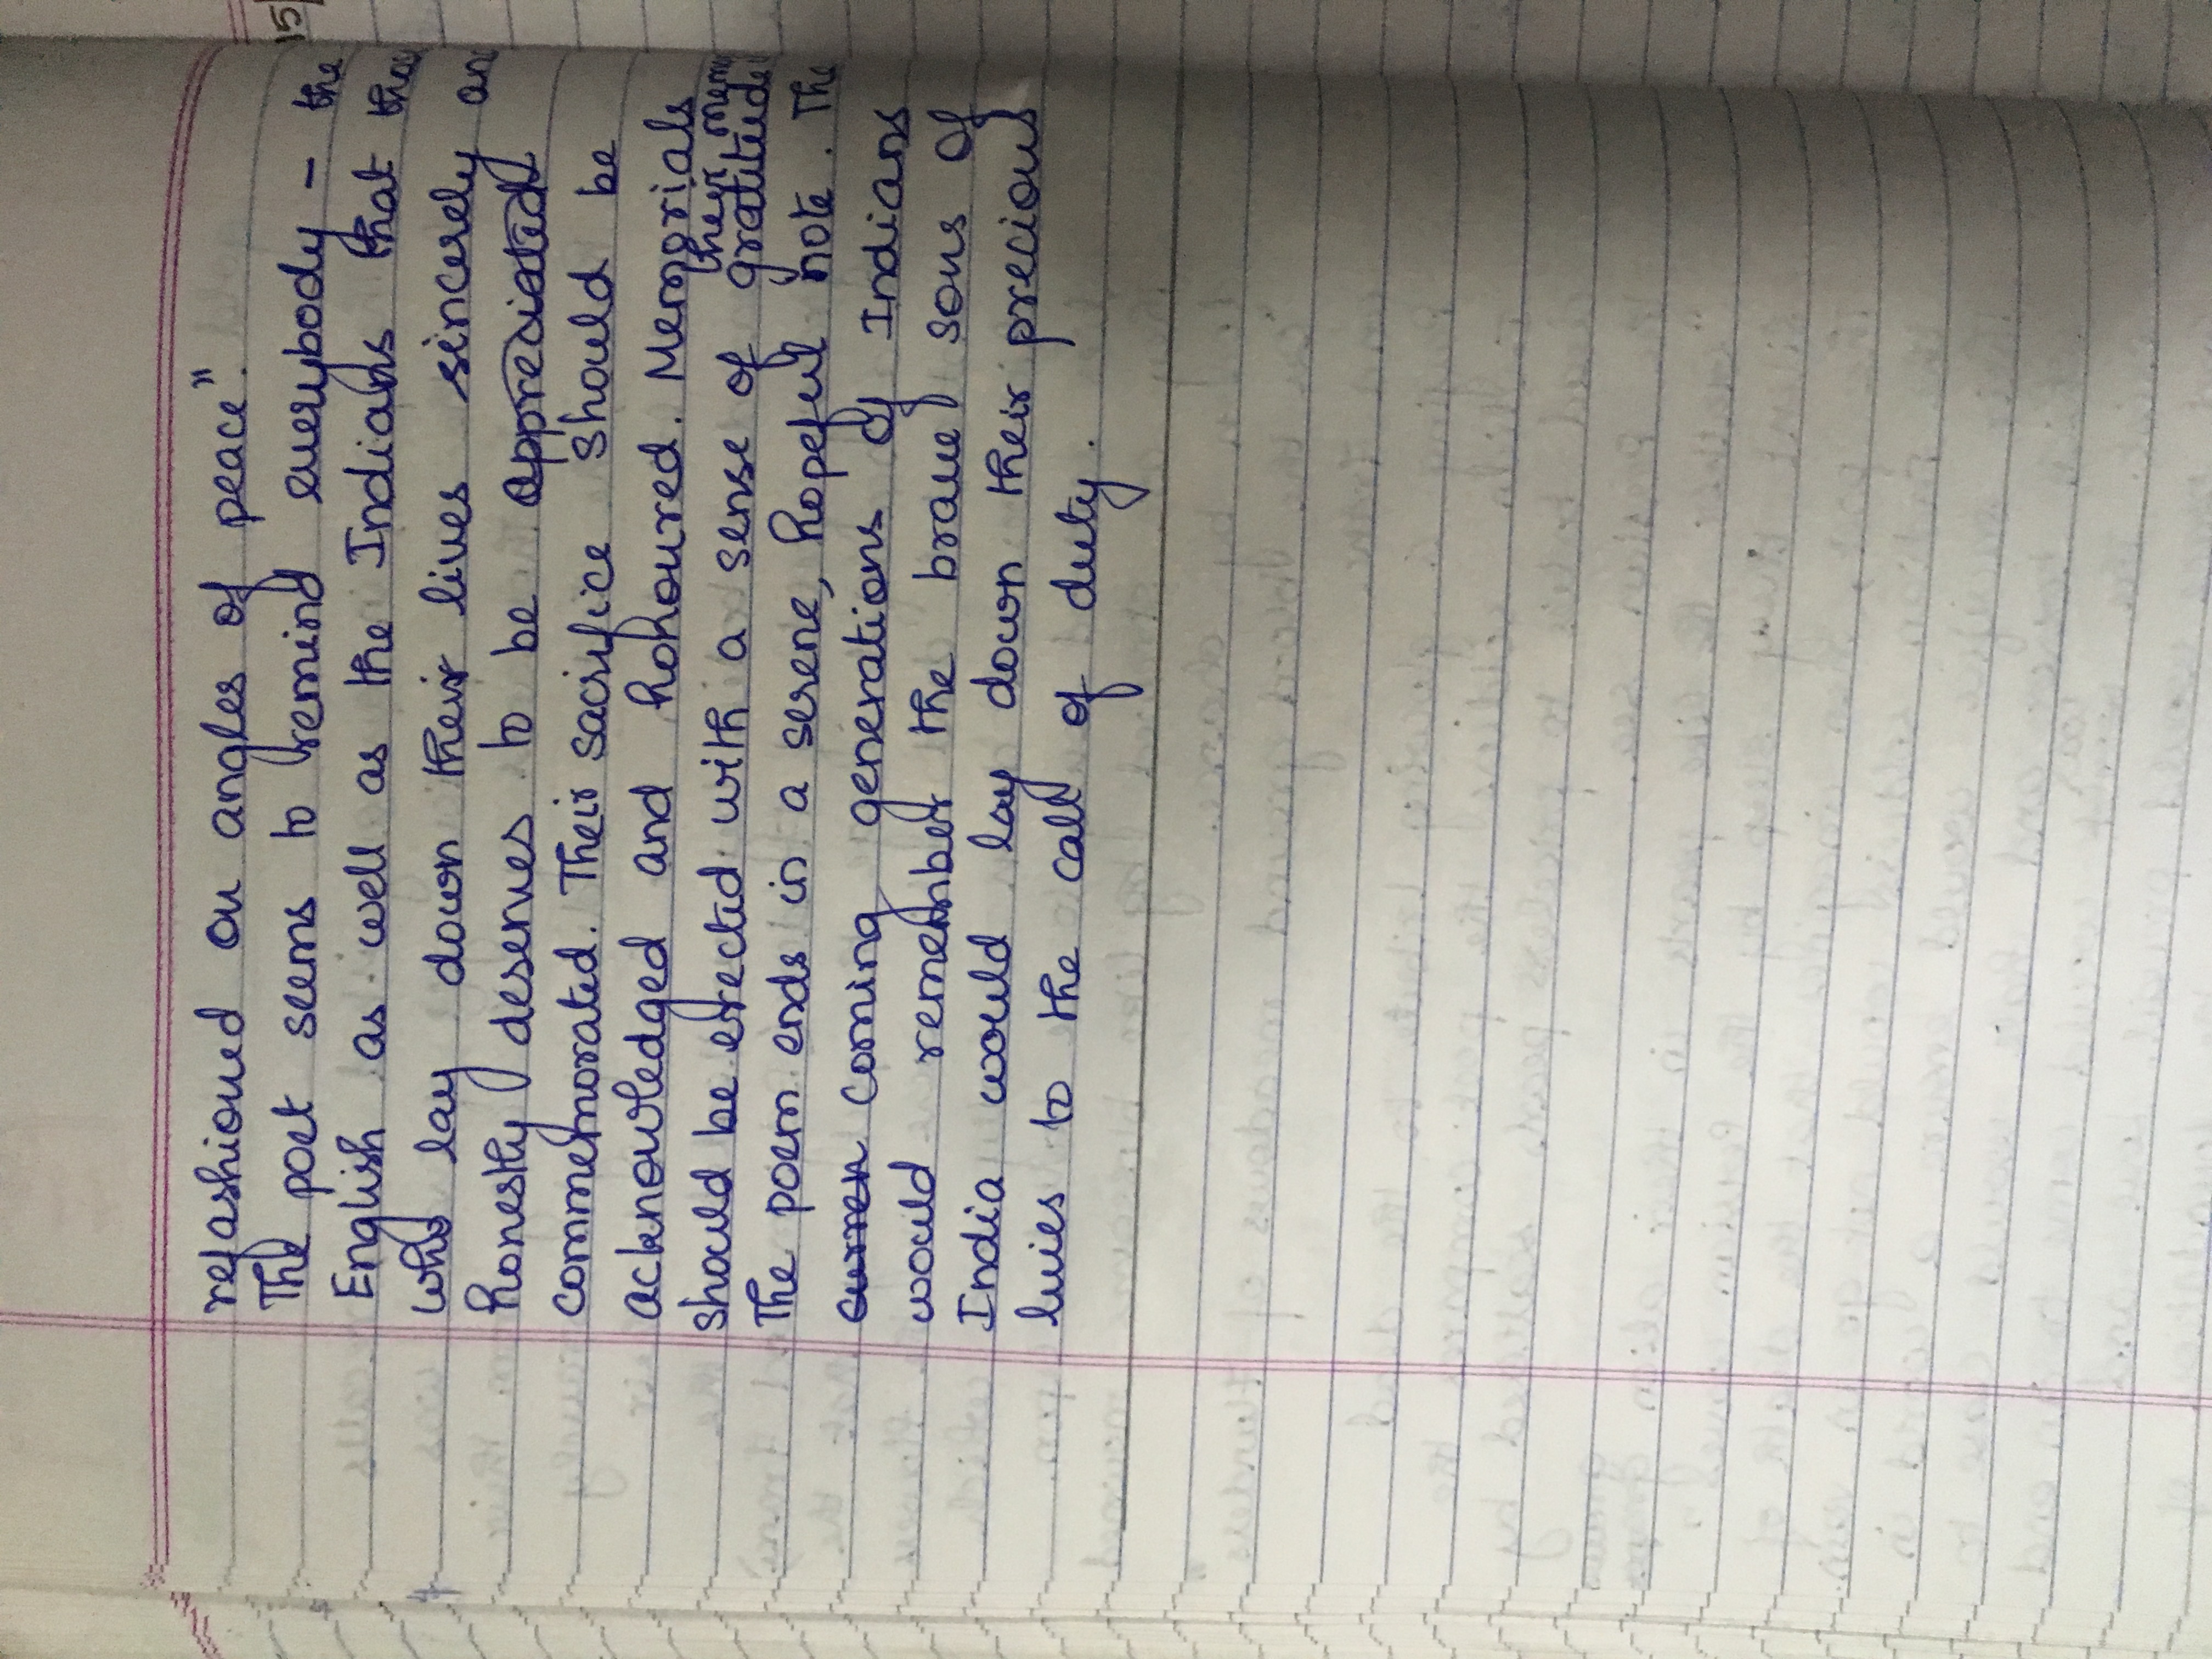 refashioned on angles of peace".
The poet seems to remind everybody - the
English as well as the Indians that
who lay down their lives sincerely
honestly deserves to be appreciated
commemorated. Their sacrifice should be
acknowledged and honoured. Memorials
their
should be erected with a sense of gratitude
The poem ends in a serene, hopeful note. The
curren coming generations of Indians
would remember the brave sons of
India would lay down their precious
lives to the call of duty.
15